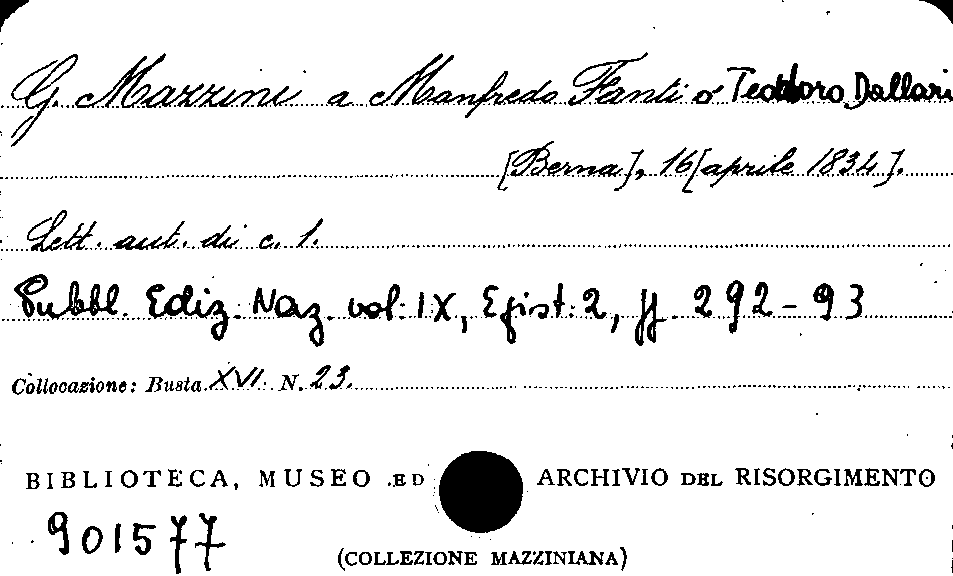 G. Mazzini a Manfredo Fanti o Teodoro Dallari
[Berna], 16 [aprile 1834].
Lett. aut. di c. 1.
Pubbl. Ediz. Naz. vol. IX, Epist: 2, pp. 292-93
Collocazione: Busta XVI N. 23.
BIBLIOTECA, MUSEO ED ARCHIVIO DEL RISORGIMENTO
901577
(COLLEZIONE MAZZINIANA)